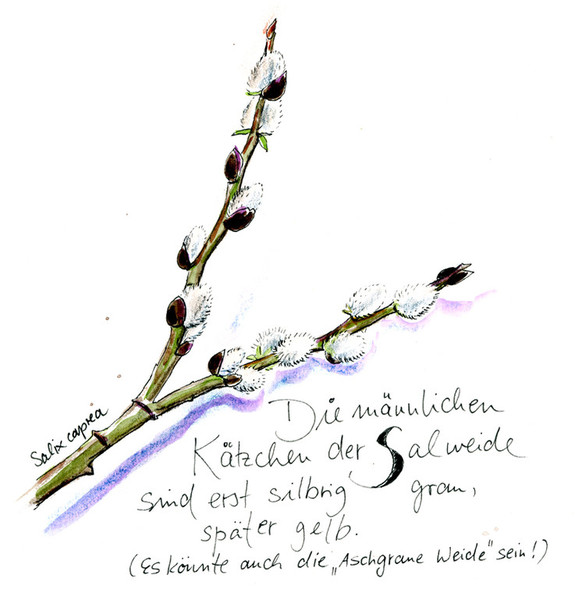 Salix caprea
Die männlichen
Kätzchen der Salweide
sind erst silbrig grau,
später gelb.
(Es könnte auch die „Aschgraue Weide“ sein!)